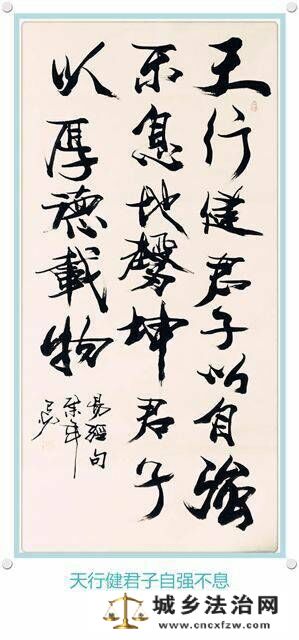 天行健君子以自強
不息地勢坤君子
以厚德載物
易經句
天行健君子自强不息
城乡法治网
www.cncxfzw.com